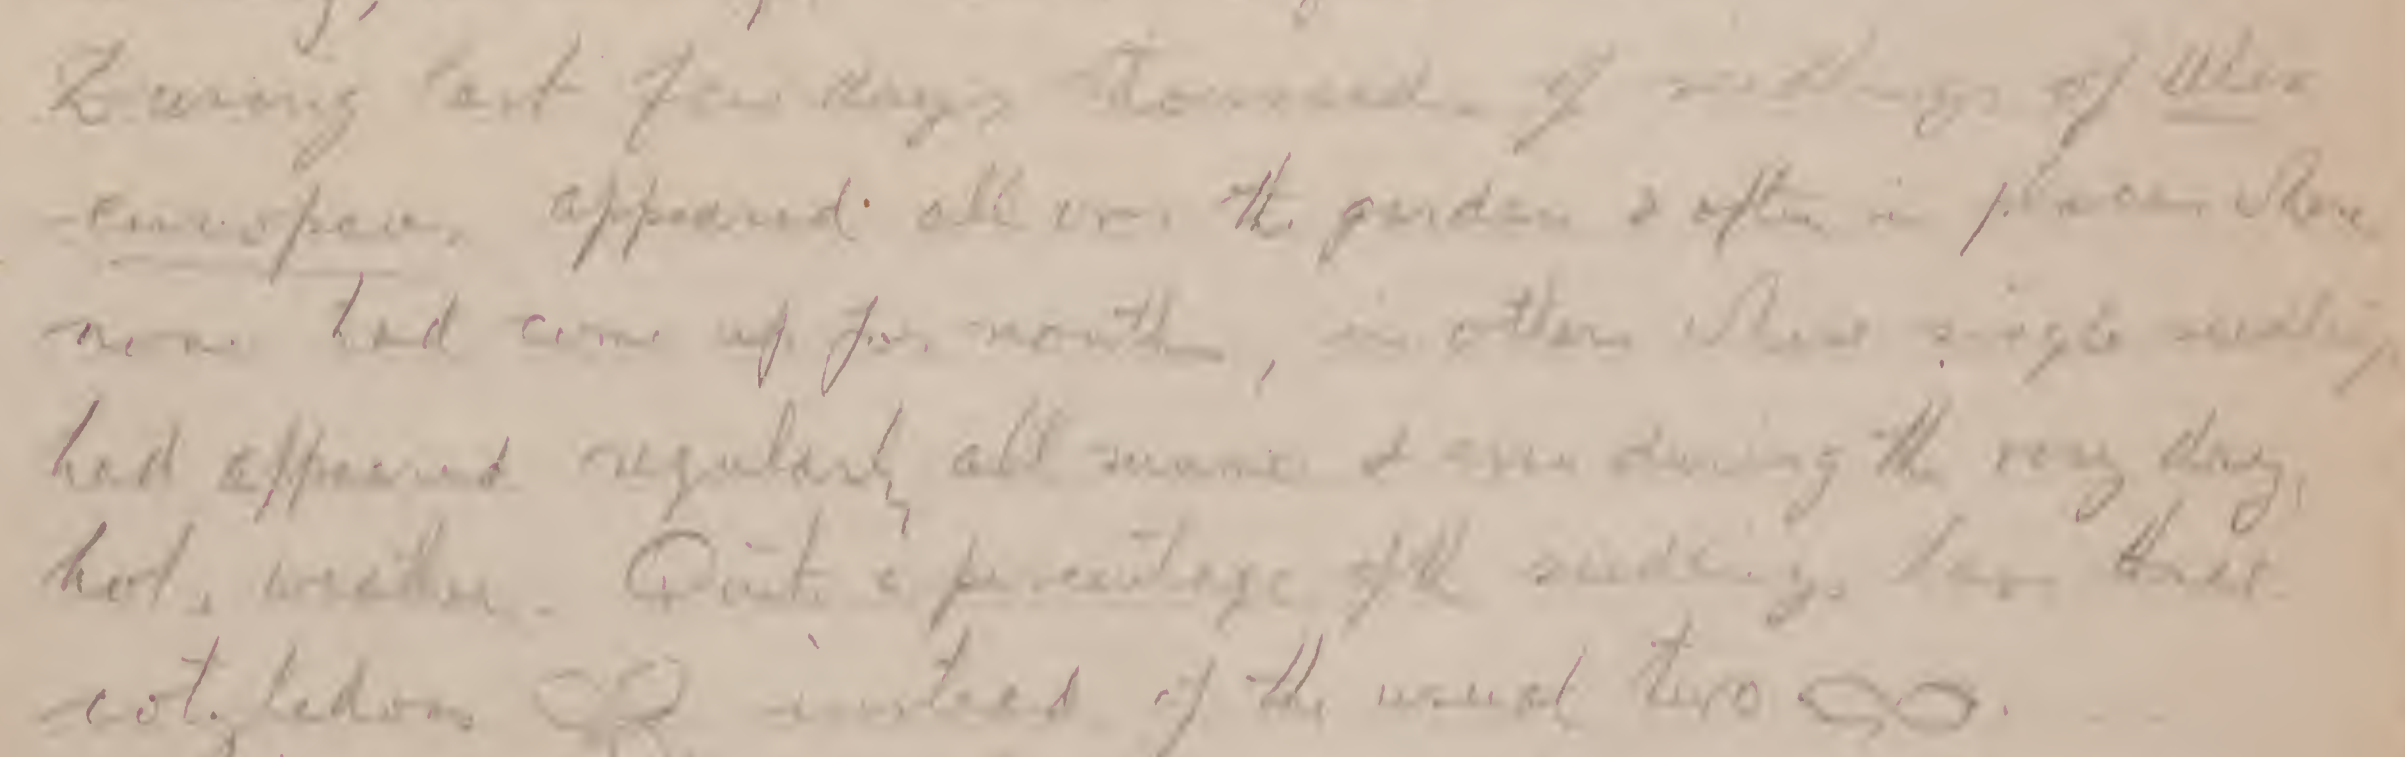 During last few days thousands of seedlings of Ulex
europaeus appeared all over the garden & often in places where
none had come up for months, in others where single seedlings
had appeared regularly all summer & even during the very dry,
hot, weather. Quite a percentage of the seedlings have three
cotyledons instead of the usual two